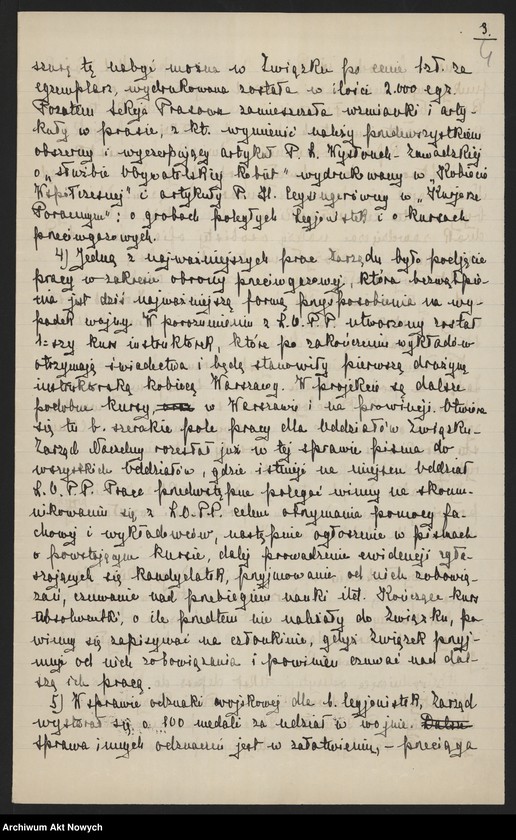 3.
4
szurę tę nabyć można w Związku po cenie 1 zł. za
egzemplarz, wydrukowana została w ilości 2.000 egz.
Pozatem Sekcja Prasowa zamieszczała wzmianki i arty-
kuły w prasie, z kt. wymienić należy przedewszystkiem
obszerny i wyczerpujący artykuł P. H. Wysłouch-Zawadzkiej
o „służbie Obywatelskiej Kobiet" wydrukowany w „Kobiecie
Współczesnej" i artykuły P. H. Ceysingerówny w „Kurjerze
Porannym": o grobach poległych Legjonistek i o kursach
przeciwgazowych.
4) Jedną z najważniejszych prac Zarządu było podjęcie
pracy w zakresie obrony przeciwgazowej, która bezwątpie-
nia jest dziś najważniejszą formą przysposobienia na wy-
padek wojny. W porozumieniu z L.O.P.P. utworzony został
1-szy kurs instruktorek, które po zakończeniu wykładów
otrzymają świadectwa i będą stanowiły pierwszą drużynę
instruktorską kobiecą Warszawy. W projekcie są dalsze
podobne kursy, w Warszawie i na prowincji. Otwiera
się tu b. szerokie pole pracy dla Oddziałów Związku.
Zarząd Naczelny rozesłał już w tej sprawie pisma do
wszystkich Oddziałów, gdzie istnieje na miejscu Oddział
L.O.P.P. Prace przedwstępne polegać winny na skomu-
nikowaniu się z L.O.P.P. celem otrzymania pomocy fa-
chowej i wykładowców, następnie ogłoszenie w pismach
o powstającym kursie, dalej prowadzenie ewidencji zgła-
szających się kandydatek, przyjmowanie od nich zobowią-
zań, czuwanie nad przebiegiem nauki itd. Kończące kurs
absolwentki, o ile przedtem nie należały do Związku, po-
winny się zapisywać na członkinie, gdyż Związek przyj-
muje od nich zobowiązania i powinien czuwać nad dal-
szą ich pracą.
5) W sprawie odznaki wojskowej dla b. legjonistek, Zarząd
wystarał się o 800 medali za udział w wojnie. Dalsza
sprawa innych odznaczeń jest w załatwieniu, – przeciąga
Archiwum Akt Nowych